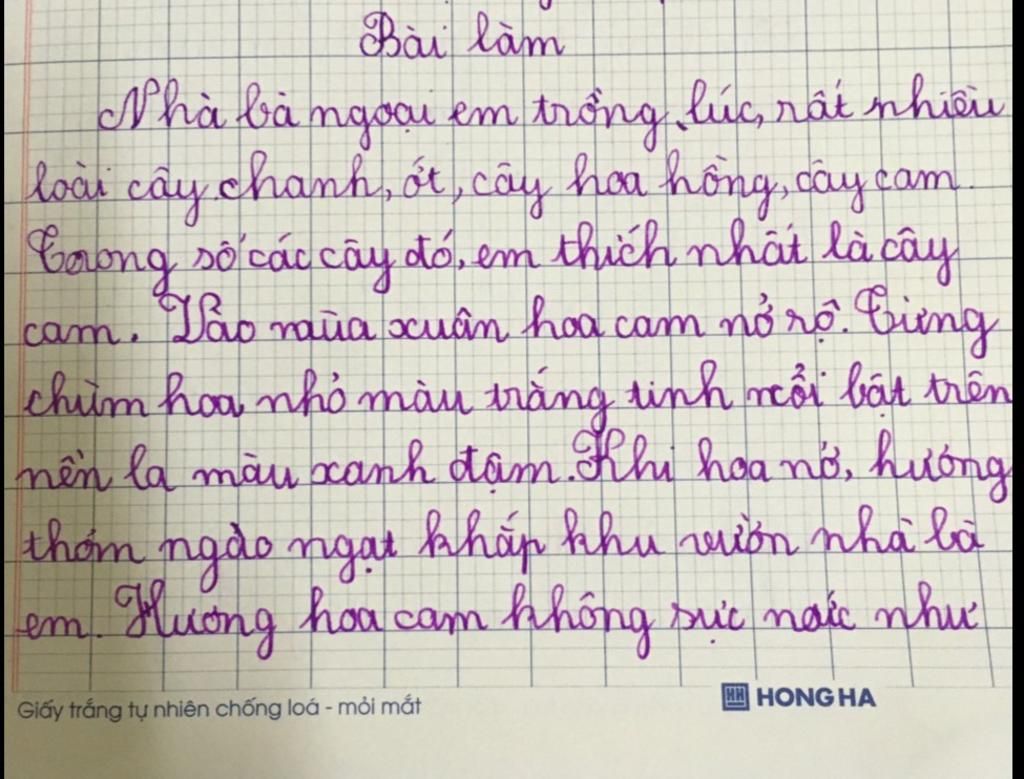 Bài làm
Nhà bà ngoại em trồng lúc, rất nhiều
loài cây chanh, ớt, cây hoa hồng, cây cam.
Trong số các cây đó, em thích nhất là cây
cam. Vào mùa xuân hoa cam nở rộ. Từng
chùm hoa nhỏ màu trắng tinh nổi bật trên
nền la màu xanh đậm. Khi hoa nở, hương
thơm ngào ngạt khắp khu vườn nhà bà
em. Hương hoa cam không sực nức như
Giấy trắng tự nhiên chống loá - mỏi mắt
HH HONG HA